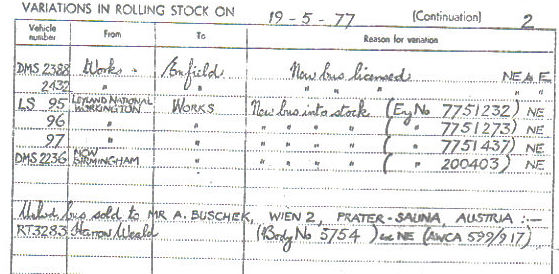 VARIATIONS IN ROLLING STOCK ON 19-5-77 (Continuation) 2
Vehicle number From To Reason for variation
DMS 2388 Works Enfield New bus licensed NE to E
2432 " " " " " " "
LS 95 LEYLAND NATIONAL WORKINGTON WORKS New bus into stock (Eng No 7751232) NE
96 " " " " " " ( " 7751273) NE
97 " " " " " " ( " 7751437) NE
DMS 2236 MCW BIRMINGHAM " " " " " ( " 200403) NE
bus sold to MR A. BUSCHEK, WIEN 2, PRATER-SAUNA, AUSTRIA :—
RT3283 Harrow Weald (Body No 5754) ex NE (AWCA 599/917)